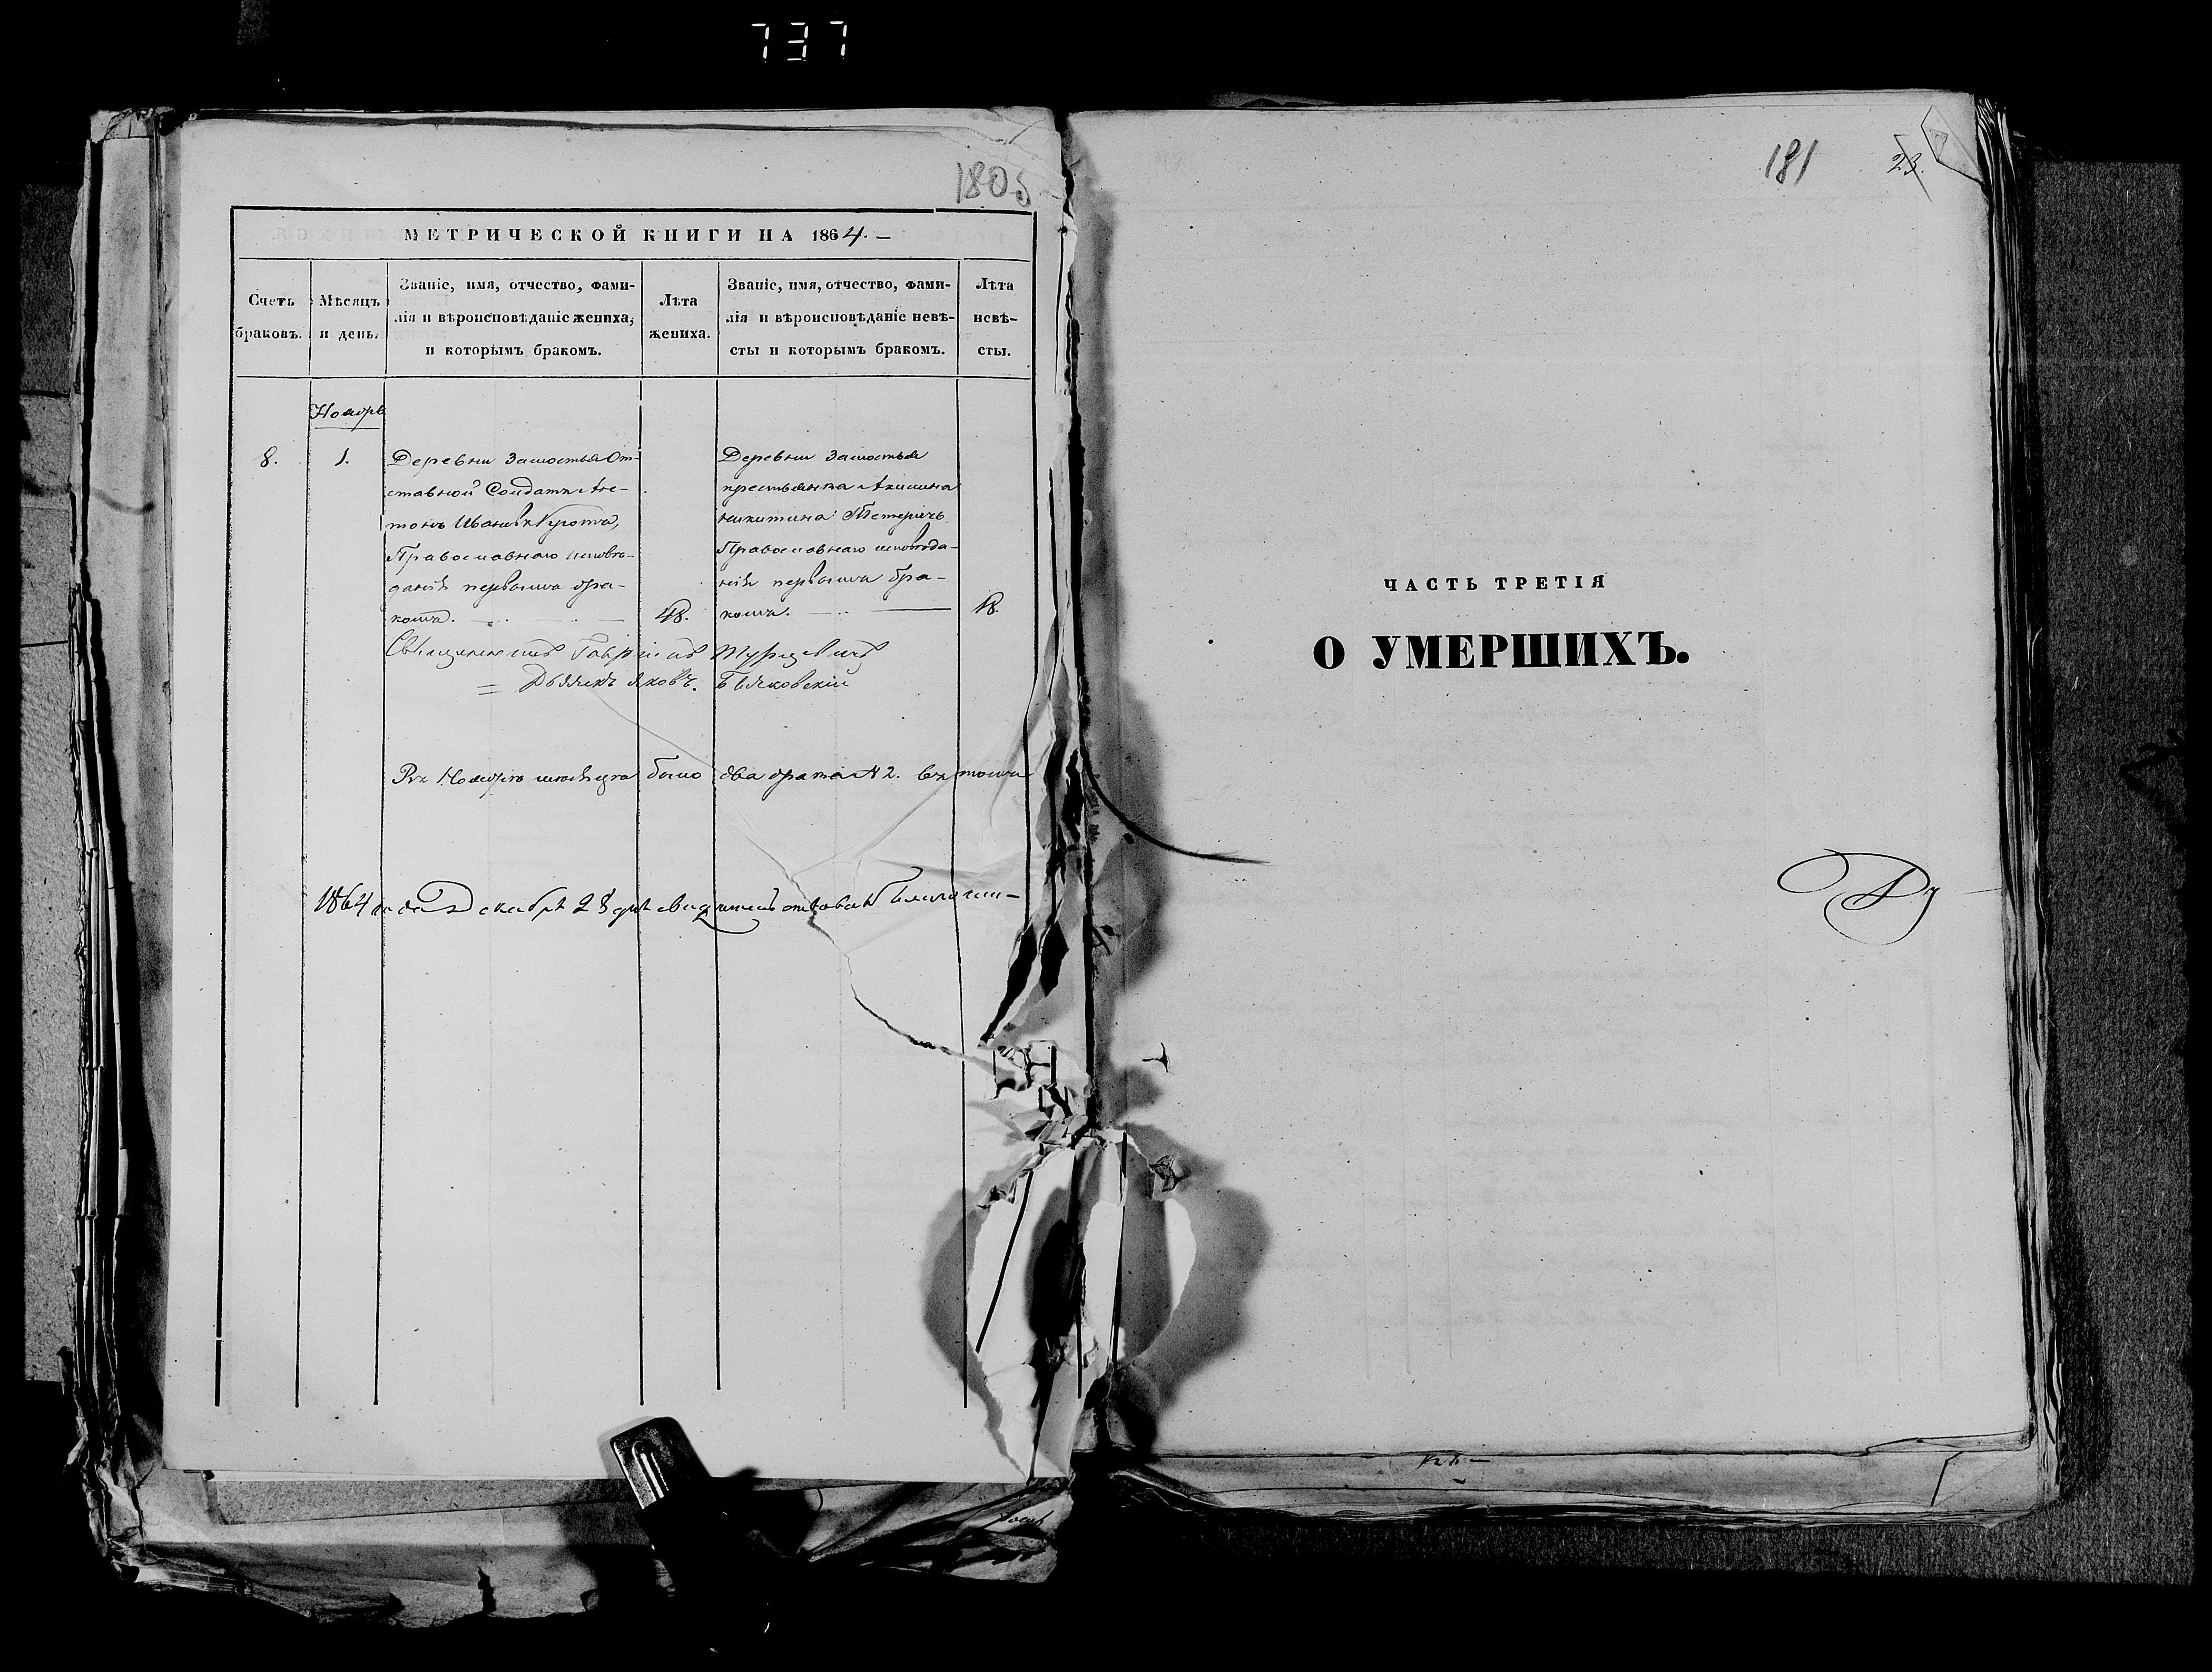 737
180об
МЕТРИЧЕСКОЙ КНИГИ НА 1864. —
Счетъ браковъ.
Мѣсяцъ и день.
Званіе, имя, отчество, фами-
лія и вѣроисповѣданіе жениха,
и которымъ бракомъ.
Лѣта жениха.
Званіе, имя, отчество, фами-
лія и вѣроисповѣданіе невѣ-
сты и которымъ бракомъ.
Лѣта невѣ-
сты.
Ноябрь
8.
1.
Деревни Замостья От-
ставной Солдатъ Ан-
тонъ Ивановъ
Православнаго исповѣ-
данія первымъ бра-
комъ.
48.
Деревни Замостья
крестьянка Акилина
Никитина
Православнаго исповѣда-
нія первымъ бра-
комъ.
18.
Священникъ Гавріилъ Турцевичъ
= Дьячекъ Яковъ
Въ Ноябрѣ мѣсяцѣ было два брака № 2. въ томъ
1864 года Декабря 28 дня свидѣтельствовалъ
181
23.
ЧАСТЬ ТРЕТІЯ
О УМЕРШИХЪ.